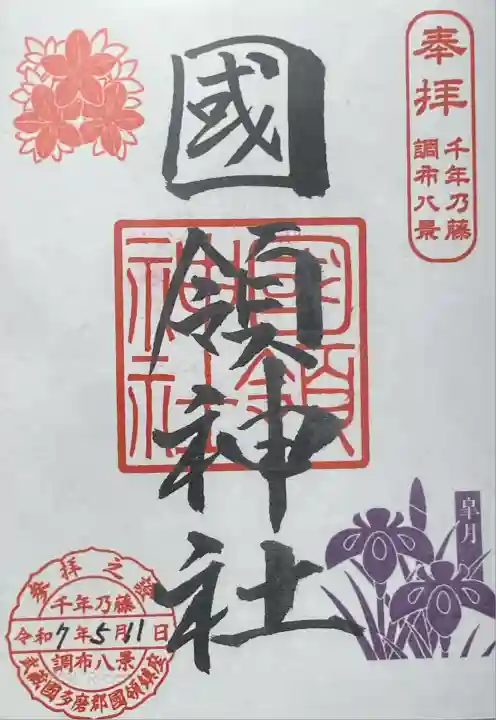 奉拝
千年乃藤
調布八景
國領神社
國領
神社
皐月
参拝之證
千年乃藤
令和7年5月11日
調布八景
武蔵國多磨郡國領鎮座